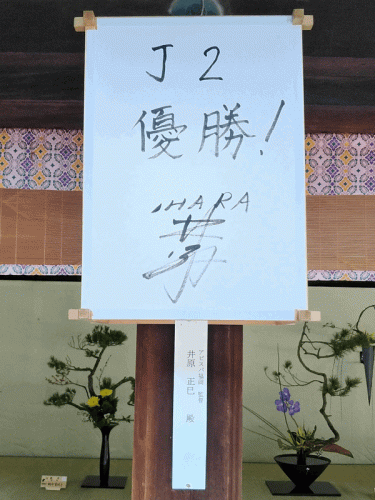 J2
優勝!
IHARA
アビスパ福岡 監督
井原 正巳 殿